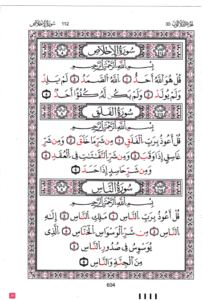 سورة الإخلاص 112
30
سورة الإخلاص
بسم الله الرحمن الرحيم
قل هو الله أحد الله الصمد لم يلد
ولم يولد ولم يكن له كفوا أحد
سورة الفلق
بسم الله الرحمن الرحيم
قل أعوذ برب الفلق من شر ما خلق ومن شر
غاسق إذا وقب ومن شر النفاثات في العقد
ومن شر حاسد إذا حسد
سورة الناس
بسم الله الرحمن الرحيم
قل أعوذ برب الناس ملك الناس إله
الناس من شر الوسواس الخناس الذي
يوسوس في صدور الناس
من الجنة والناس
604